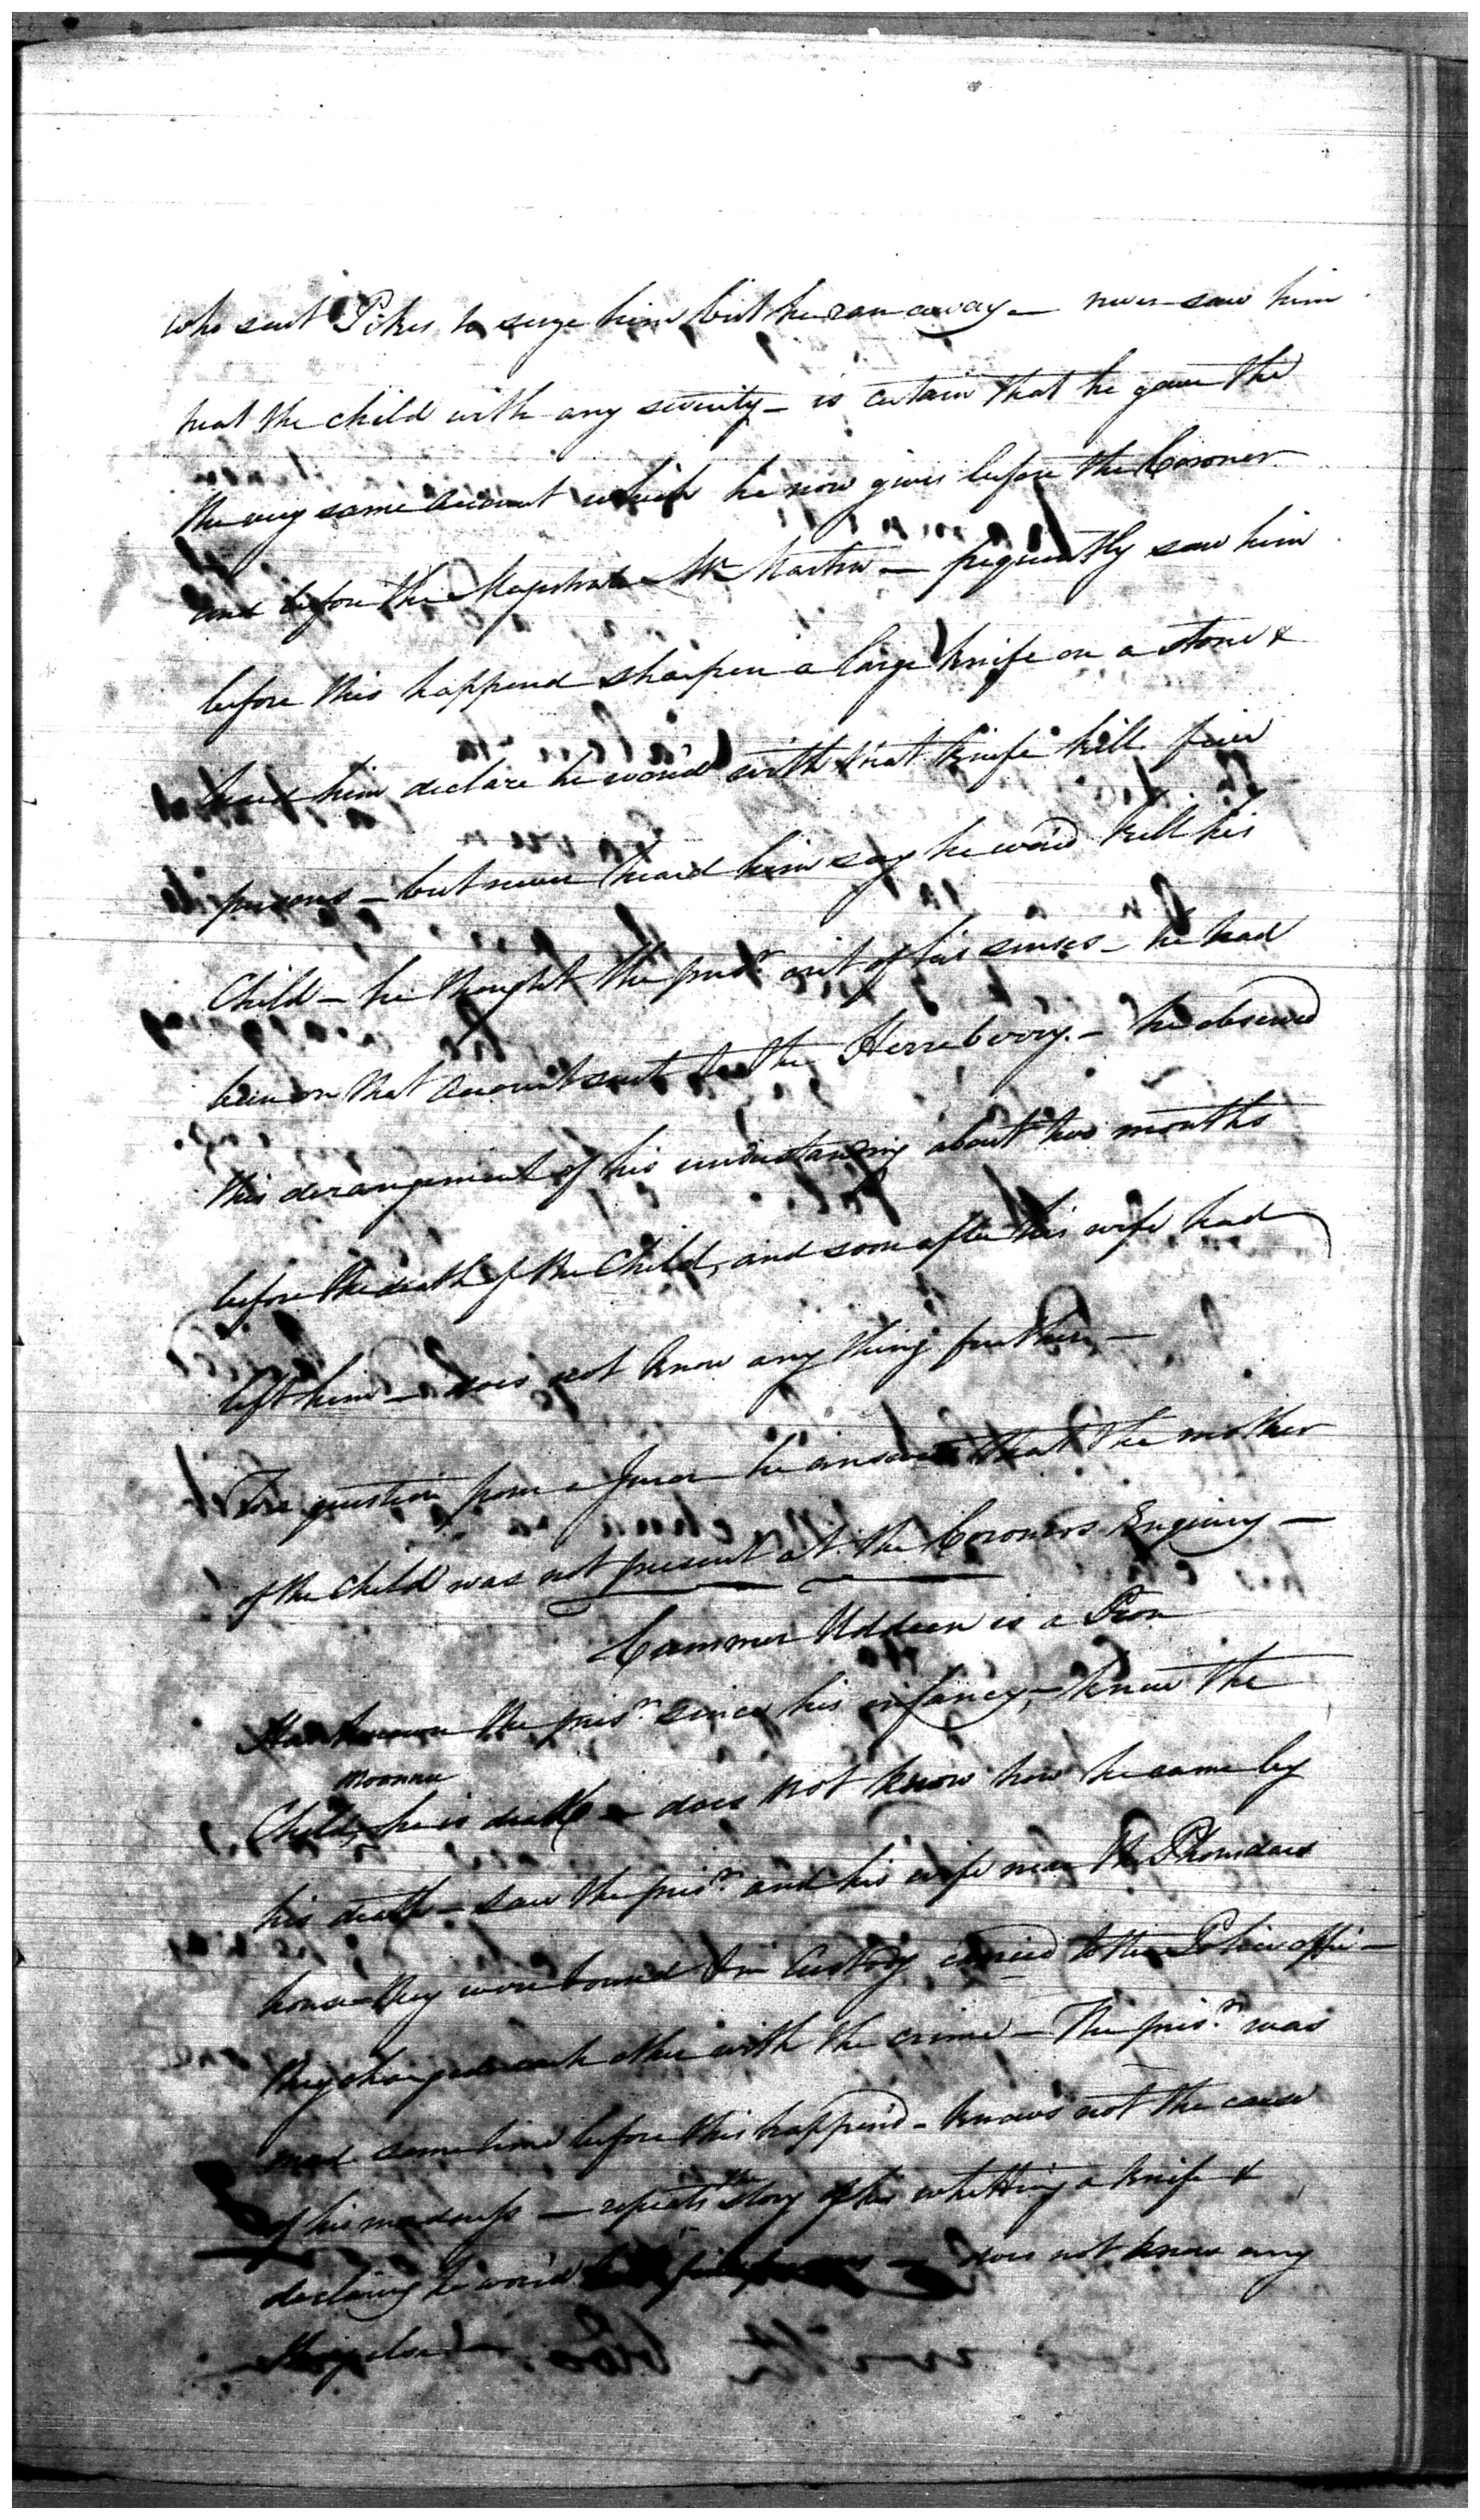 who sent Pikes to seize him, but he ran away — never saw him
treat the child with any severity — is certain that he gave the
the very same account which he now gives before the Coroner
and before the Magistrate Mr Martin — frequently saw him
before this happend sharpen a large knife on a stone &
heard him declare he wou'd with that knife kill four
persons — but never heard him say he wou'd kill his
Child — he thought the prisr. out of his senses — he had
been on that account sent to the — he observed
this derangement of his understanding about two months
before the death of the Child, and soon after his wife had
left him — does not know any thing further —
To a question from a Juror he answers that the mother
of the Child was not present at the Coroners Enquiry —
Cummer Uddeen is a Peon
Has known the prisr. since his infancy — knew the
Child, Moonnu he is dead — does not know how he came by
his death — saw the prisr. and his wife near the
house they were bound & in Custody carried to the Police offi —
they charged each other with the crime — The prisr. was
mad some time before this happen'd — knows not the cause
of his madness — repeats the story of his whetting a knife &
declaring he wou'd kill four persons — does not know any
thing else —